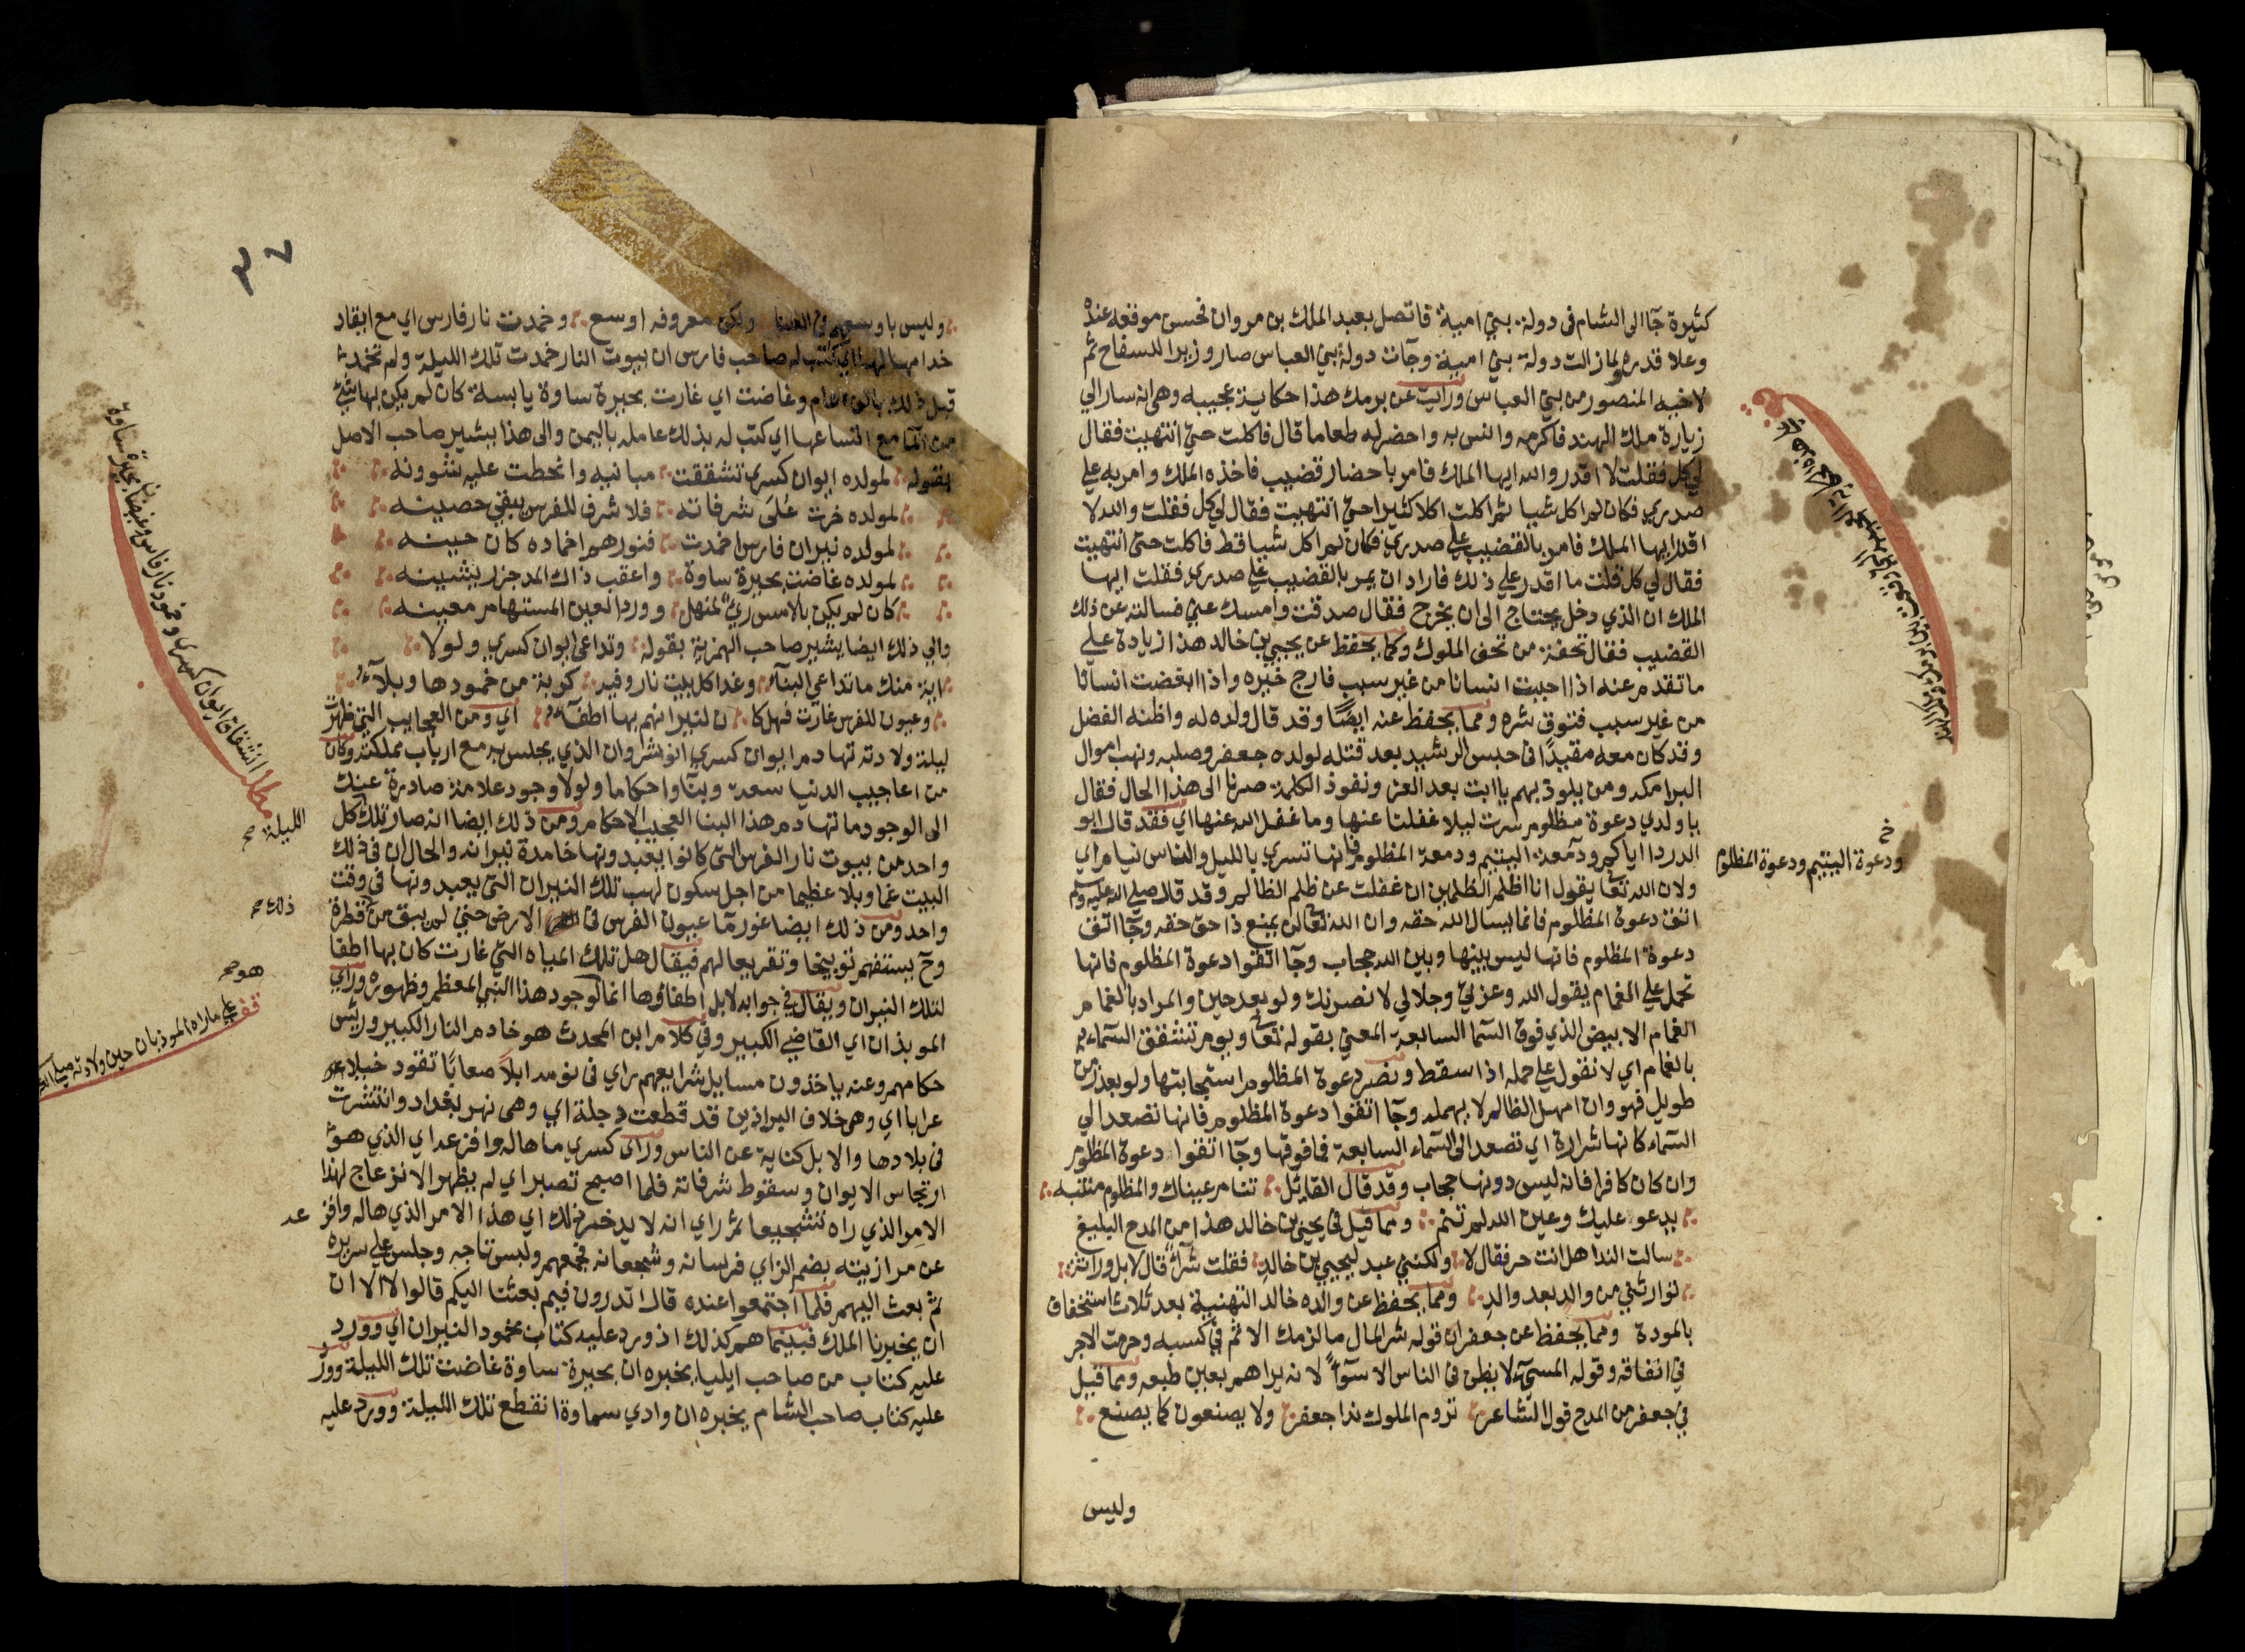 كثيرة جآ الى الشام فى دولة بني امية فاتصل بعبد الملك بن مروان فحسن موقعه عنده
وعلا قدره ولما زالت دولة بني امية وجآت دولة بني العباس صار وزيرا للسفاح ثم
لاخيه المنصور من بني العباس ورايت عن برمك هذا حكاية عجيبه وهى انه سار الي
زيارة ملك الهند فاكرمه وانس به واحضر له طعاما قال فاكلت حتي انتهيت فقال
لي كل فقلت لا اقدر والله ايها الملك فامر باحضار قضيب فاخذه الملك وامر به علي
صدري فكان لم اكل شيا ثم اكلت اكلا كثيرا حتي انتهيت فقال لي كل فقلت والله لا
اقدر ايها الملك فامر بالقضيب علي صدري فكان لم اكل شيا قط فاكلت حتى انتهيت
فقال لي كل قلت ما اقدر علي ذلك فاراد ان يمر بالقضيب علي صدري فقلت ايها
الملك ان الذي دخل يحتاج الى ان يخرج فقال صدقت وامسك عني فسالته عن ذلك
القضيب فقال تحفة من تحف الملوك ومما يحفظ عن يحيي بن خالد هذا زيادة علي
ما تقدم عنه اذا احببت انسانا من غير سبب فارج خيره واذا ابغضت انسانا
من غير سبب فتوق شره ومما يحفظ عنه ايضًا وقد قال ولده له واظنه الفضل
وقد كان معه مقيدًا فى حبس الرشيد بعد قتله لولده جعفر وصلبه ونهب اموال
البرامكه ومن يلوذ بهم يا ابت بعد العز ونفوذ الكلمة صرنا الى هذا الحال فقال
يا ولدي دعوة مظلوم سرت ليلا غفلنا عنها وما غفل الله عنها اي فقد قال ابو
الدردا اياكم ودمعة اليتيم ودمعة المظلوم فانها تسري بالليل والناس نيام اي
ولان الله تعا يقول انا اظلم الظلمين ان غفلت عن ظلم الظالم وقد قال صلي الله عليه وسلم
اتق دعوة المظلوم فانما يسال الله حقه وان الله تعالى لن يمنع ذا حق حقه وجآ اتق
دعوة المظلوم فانها ليس بينها وبين الله حجاب وجآ اتقوا دعوة المظلوم فانها
تحمل علي الغمام يقول الله وعزتي وجلالي لانصرنك ولو بعد حين والمراد بالغمام
الغمام الابيض الذي فوق السما السابعة المعني بقوله تعا ويوم تشقق السمآء
بالغمام اي لا نقول علي حمله اذا سقط ونصر دعوة المظلوم استجابتها ولو بعد زمن
طويل فهو وان امهل الظالم لا يهمله وجآ اتقوا دعوة المظلوم فانها تصعد الي
السمآء كانها شرارة اي تصعد الى السمآء السابعة فما فوقها وجآ اتقوا دعوة المظلوم
وان كان كافرا فانه ليس دونها حجاب وقد قال القايل تنام عيناك والمظلوم منتبه
يدعو عليك وعين الله لم تنم ومما قيل فى يحيي بن خالد هذا من المدح البليغ
سالت الندا هل انت حر فقال لا ولكنني عبد ليحيي بن خالد فقلت شرآء قال لا بل وراثة
توارثني من والد بعد والد ومما يحفظ عن والده خالد التهنية بعد ثلاث استخفاف
بالمودة ومما يحفظ عن جعفر ان قوله شر المال ما لزمك الاثم في كسبه وحرمت الاجر
في انفاقه وقوله المسئ لا يظن فى الناس الا سوآً لانه يراهم بعين طبعه ومما قيل
في جعفر من المدح قول الشاعر تروم الملوك ندا جعفر ولا يصنعون كما يصنع
وليس
ودعوة اليتيم ودعوة المظلوم
٣٤
وليس باوسعهم فى الغنا ولكن معروفه اوسع وخمدت نار فارس اي مع ايقاد
خدامها لها اي كتب له صاحب فارس ان بيوت النار خمدت تلك الليلة ولم تخمد
قبل ذلك بالف عام وغاضت اي غارت بحيرة ساوة يابسة كان لم يكن بها شئ
من المآ مع اتساعها اي كتب له بذلك عامله باليمن والى هذا يشير صاحب الاصل
بقوله لمولده ايوان كسري تشققت مبانيه وانحطت عليه شوونه
لمولده خرت عُلى شرفاته فلا شرف للفرس يبقي حصينه
لمولده نيران فارس اخمدت فنورهم اخماده كان حينه
لمولده غاضت بحيرة ساوة واعقب ذاك المد جزر يشينه
كان لم يكن بالامس ريًّ لمنهل وورد العين المستهام معينه
والي ذلك ايضا يشير صاحب الهمزية بقوله وتداعى ايوان كسري ولولا
اية منك ما تداعي البنآء وغدا كل بيت نار وفيه كربة من خمودها وبلآء
وعيون للفرس غارت فهل كا ن لنيرانهم بها اطفآء اي ومن العجايب التي ظهرت
ليلة ولادته تهادم ايوان كسري انوشروان الذي يجلس به مع ارباب مملكته وكان
من اعاجيب الدنيا سعة وبنآ واحكاما ولولا وجود علامة صادرة عنك
الى الوجود ما تهادم هذا البنا العجيب الاحكام ومن ذلك ايضا انه صار تلك كل
واحد من بيوت نار الفرس التى كانوا يعبدونها خامدة نيرانه والحال ان في ذلك
البيت غما وبلا عظيما من اجل سكون لهب تلك النيران التى يعبدونها في وقت
واحد ومن ذلك ايضا غور مآ عيون الفرس فى الارض حتي لم يبق منه قطرة
وح يستفهم توبيخا وتقريعا لهم فيقال هل تلك المياه التي غارت كان بها اطفا
لتلك النيران ويقال في جوابه لا بل اطفاؤها انما لوجود هذا النبي المعظم وظهوره وراي
الموبذان اي القاضي الكبير وفي كلام ابن المحدث هو خادم النار الكبير وريئس
حكامهم وعنه ياخذون مسايل شرايعهم راي فى نومه ابلاً صعابًا تقود خيلا
عرابا اي وهى خلاف البراذين قد قطعت دجلة اي وهى نهر بغداد وانتشرت
فى بلادها والابل كناية عن الناس وراى كسري ما هاله وافزعه اي الذي هو
ارتجاس الايوان وسقوط شرفاته فلما اصبح تصبر اي لم يظهر الانزعاج لهذا
الامر الذي راه تشجيعا ثم راي انه لا يدخر ذلك اي هذا الامر الذي هاله وافز
عن مرازبته بضم الزاي فرسانه وشجعانه فجمعهم ولبس تاجه وجلس علي سريره
ثم بعث اليهم فلما اجتمعوا عنده قال اتدرون فيم بعثت اليكم قالوا لا الا ان
ان يخبرنا الملك فبينما هم كذلك اذ ورد عليه كتاب بخمود النيران اي وورد
عليه كتاب من صاحب ايليا يخبره ان بحيرة ساوة غاضت تلك الليلة وورد
عليه كتاب صاحب الشام يخبره ان وادي سماوة انقطع تلك الليلة وورد عليه
مطلب انشقاق ايوان كسري وخمود نار فارس وغيض بحيرة ساوة
الليلة صح
ذلك صح
هو صح
قف علي ما راه الموبذان حين ولادته
عه